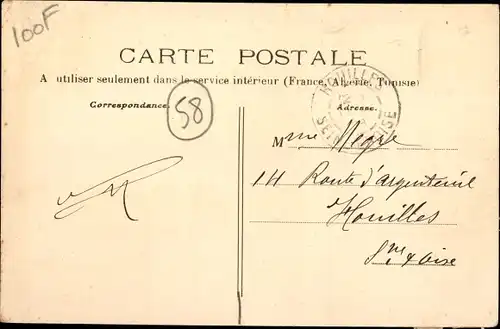 100F
CARTE POSTALE
A utiliser seulement dans le service intérieur (France, Algérie, Tunisie)
Correspondance.
58
Adresse.
HOUILLES
SEINE OISE
Mme Negre
14 Route d'argenteuil
Houilles
Sne & oise